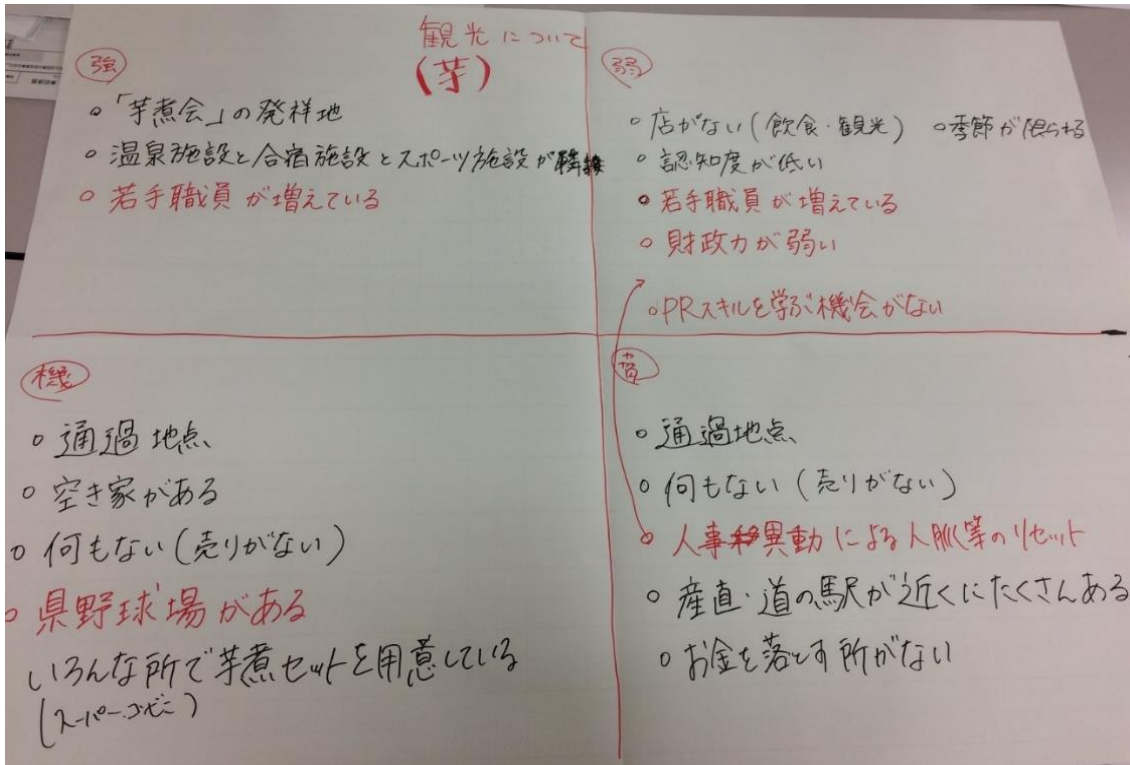 観光について
(芋)
強
○「芋煮会」の発祥地
○温泉施設と合宿施設とスポーツ施設が隣接
○若手職員が増えている
弱
○店がない(飲食・観光) ○季節が限られる
○認知度が低い
○若手職員が増えている
○財政力が弱い
○PRスキルを学ぶ機会がない
機
○通過地点
○空き家がある
○何もない(売りがない)
○県野球場がある
いろんな所で芋煮セットを用意している
(スーパー・コンビニ)
脅
○通過地点
○何もない(売りがない)
○人事異動による人脈等のリセット
○産直・道の駅が近くにたくさんある
○お金を落とす所がない